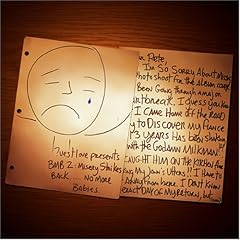 Questlove presents
BMB 2: Misery Strikes
BACK.... No More
Babies.
Pete,
I'm So Sorry About Missing
Photo shoot for the Album cover.
Been Going Through a major
Heartbreak. I Guess you know
I Came Home off the Road
to Discover My Fiance
3 years Has Been
with the Goddamn Milkman!
Caught Him on the Kitchen floor
I Have to
Away from here. I Don't Know
Exact Day of My Return, but